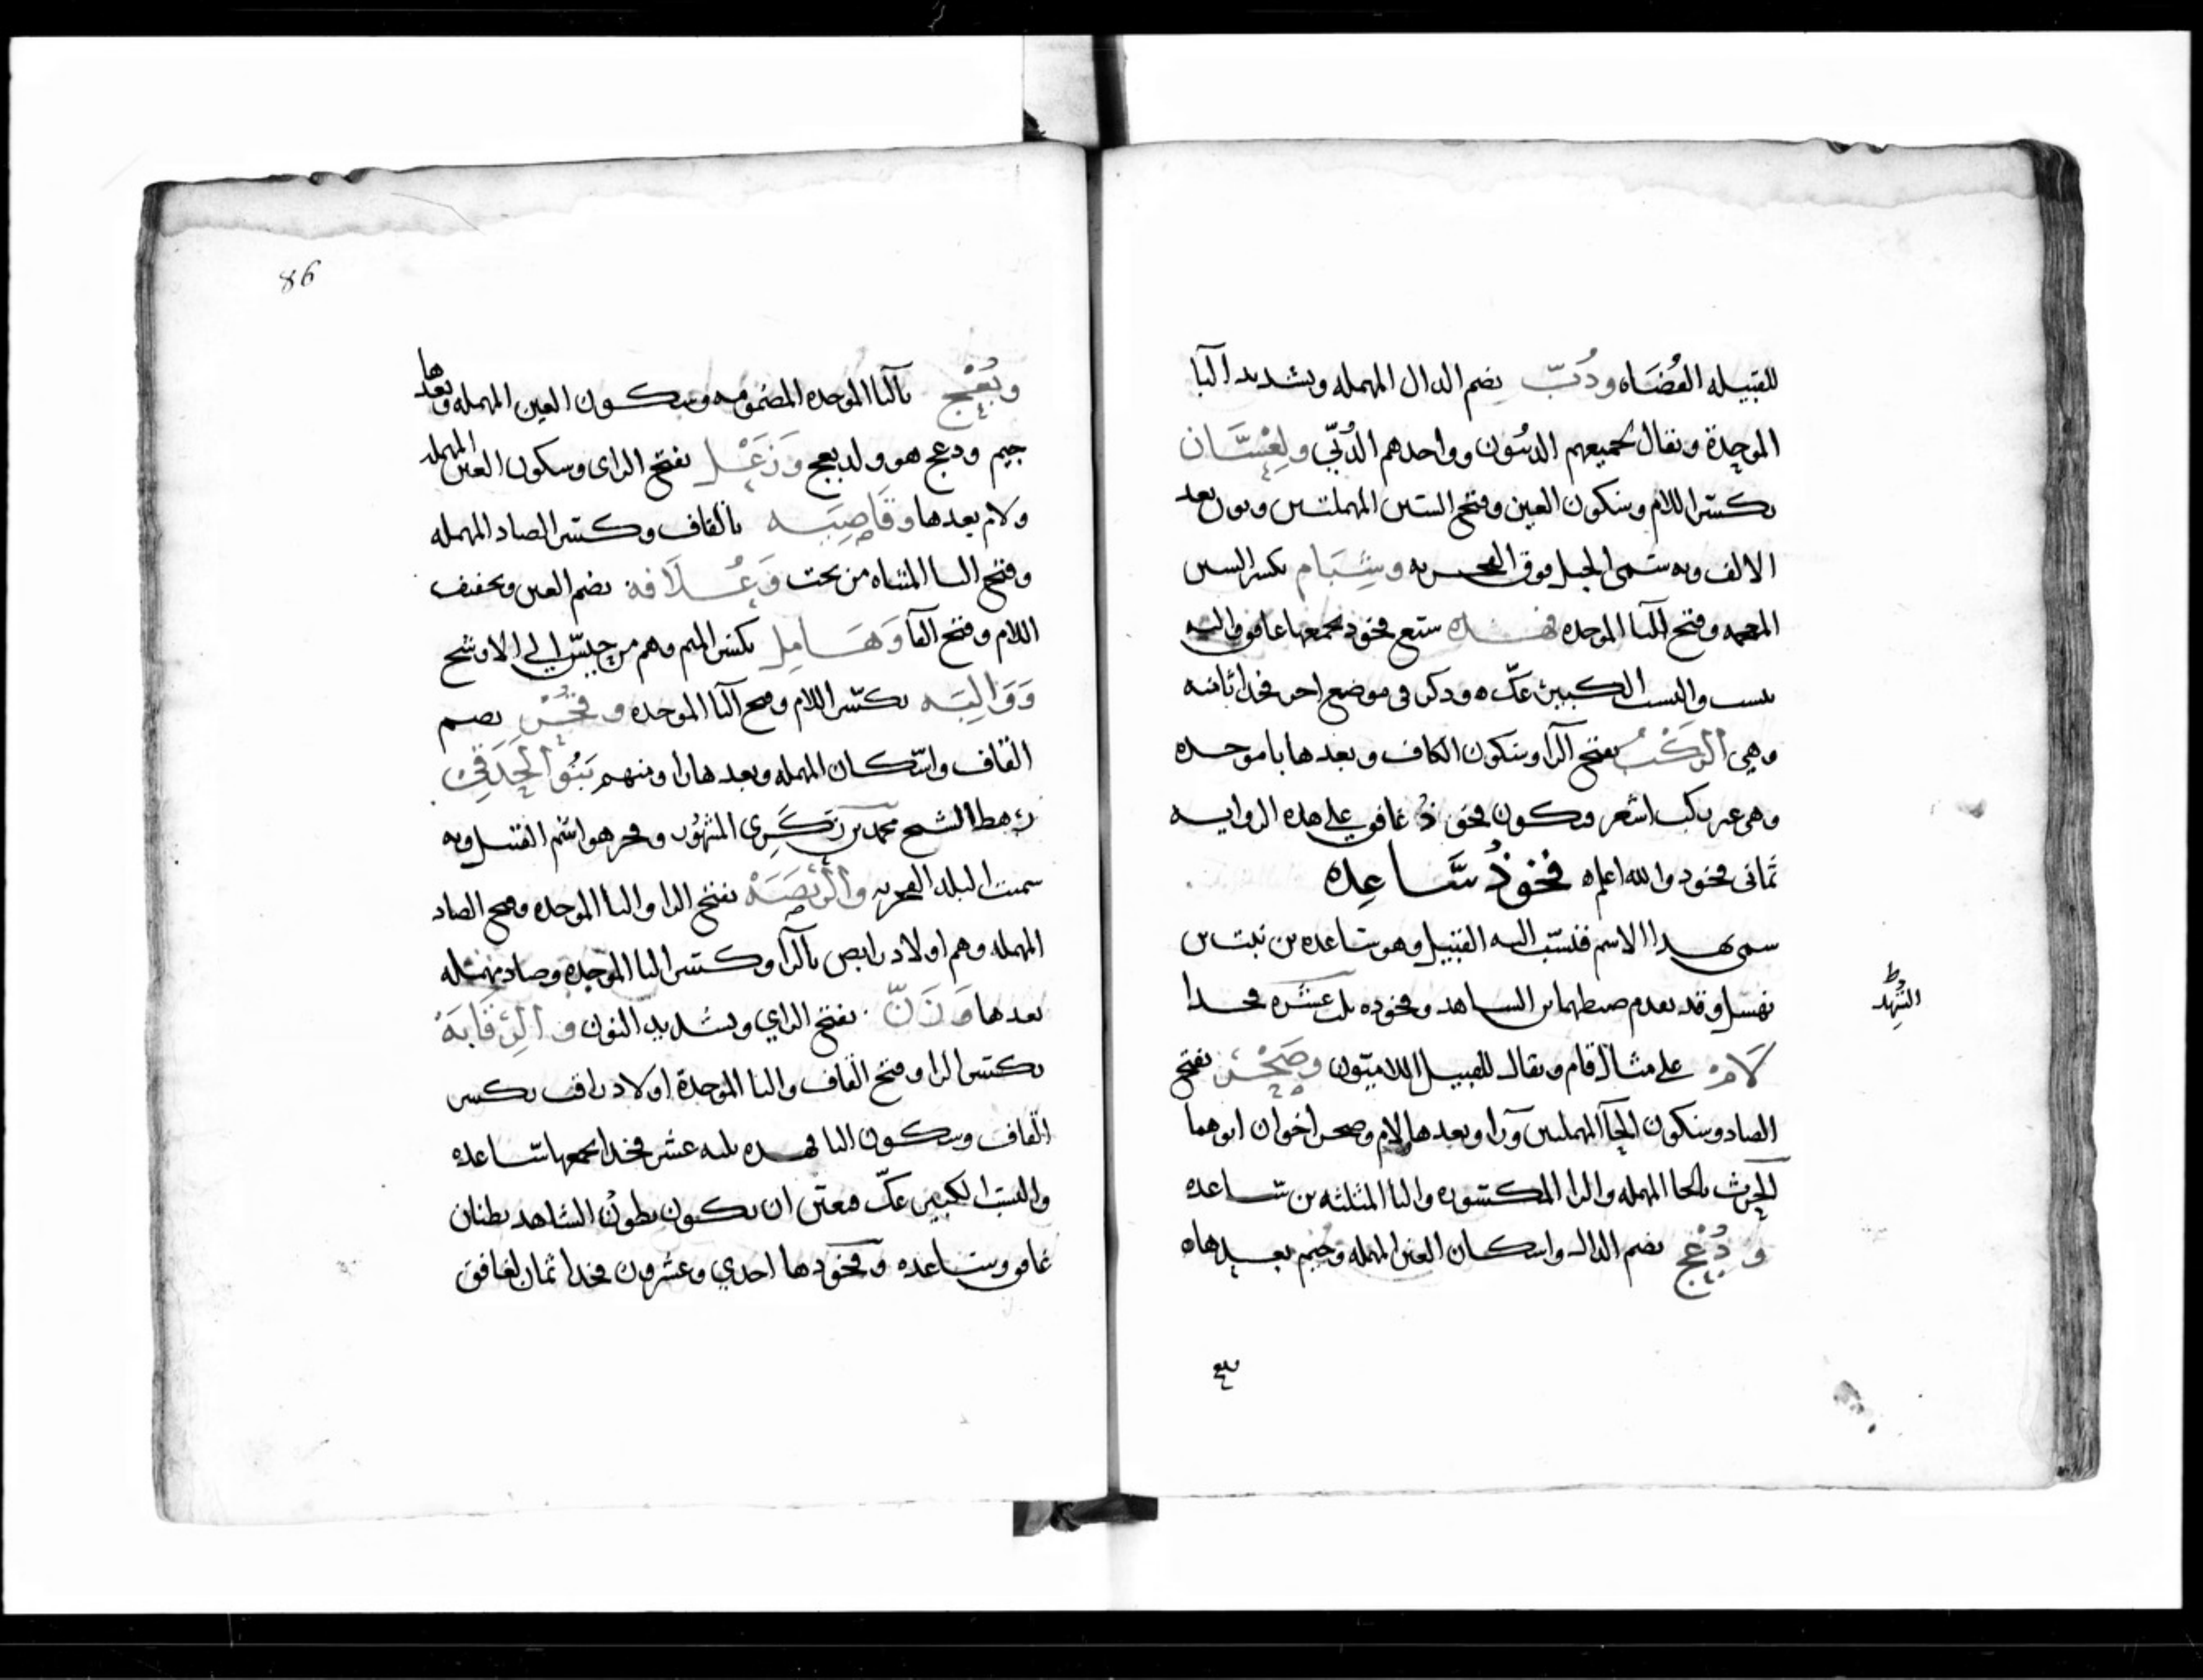 للقبيله القُضَاه ودُبّ بضم الدال المهمله وبشديد البآ
الموحدة ويقال لجميعهم الدبيون وواحدهم الدُبّي ولِعْسَان
بكسر اللام وسكون العين وفتح السين المهملتين ونون بعد
الالف وبه سمى الجبل فوق القحريه وشِبَام بكسر الشين
المعجمه وفتح البآ الموحده فهذه سبع فخود يجمعها غافق واليه
ينسب والنسب الكبير عكّ ه وذكر في موضع اخر فخذا ثامنه
وهي الركْبُ بفتح الرآ وسكون الكاف وبعدها با موحده
وهي غير ركب اشعر فيكون فخوذ غافق على هذه الروايه
ثمانى فخود والله اعلم ه فخوذُ سَاعِده
سمى بهذا الاسم فنسب اليه القبيل وهو ساعده بن نبت بن
وقد تقدم ضبطهما بن الشاهد وفخوده ثلث عشره فخذا
النهد
لَامْ على مثال قام ويقال للقبيل اللاميّون وصَحْر بفتح
الصاد وسكون الحآ المهملتين ورآ وبعدها لام وصحر اخوان ابوهما
الحرِث بالحا المهمله والرا المكسوره والثا المثلثه بن ساعده
ودُعْج بضم الدال واسكان العين المهمله وجيم بعدها ه
وبعج
86
وبُعْج بالبا الموحده المضمومه وسكون العين المهمله وبعدها
جيم ودعج هو ولد بعج وَزَعْل بفتح الزاى وسكون العين المهمله
ولام بعدها وقَاصِيَه بالقاف وكسر الصاد المهمله
وفتح اليا المثناه من تحت وَعُلَافه بضم العين وتخفيف
اللام وفتح الفآ وَهَامِل بكسر الميم وهم من حيس الى الاوشج
وَوَالِبَه بكسر اللام وفتح البا الموحده وقُحْر بضم
القاف واسكان المهمله وبعدها را ومنهم بَنُو الحَدَقِي
رهط الشيخ محمد بن زكَرِى المشهور وقحر هو اسم القبيل وبه
سميت البلد القحريه والرَبَصَهْ بفتح الرا والبا الموحده وفتح الصاد
المهمله وهم اولاد رابص بالرآ وكسر البا الموحده وصاد مهمله
بعدها وَزَنّ بفتح الزاي وبشديد النون والرِقَابَهْ
بكسر الرا وفتح القاف والبا الموحدة اولاد راقب بكسر
القاف وسكون البا فهذه ثلثه عشر فخذا يجمعها ساعده
والنسب الكبير عكّ فتعين ان يكون بطون الشاهد بطنان
غافق وساعده وفخودها احدي وعشرون فخذا ثمان لغافق